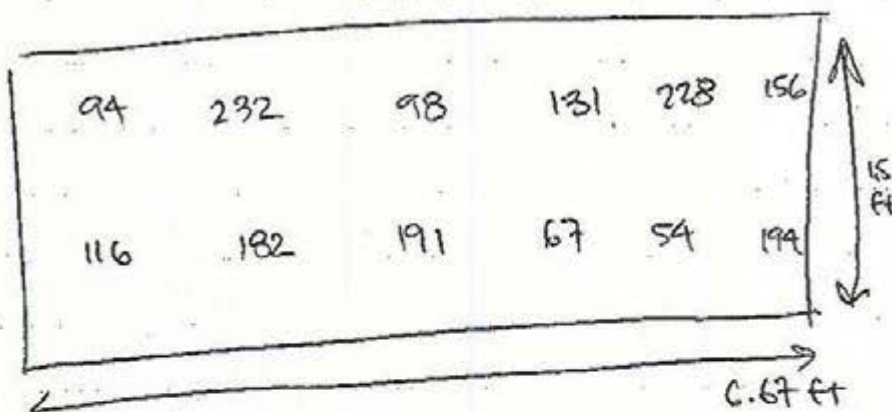 94 232 98 131 228 156
116 182 191 67 54 194
15
ft
6.67 ft